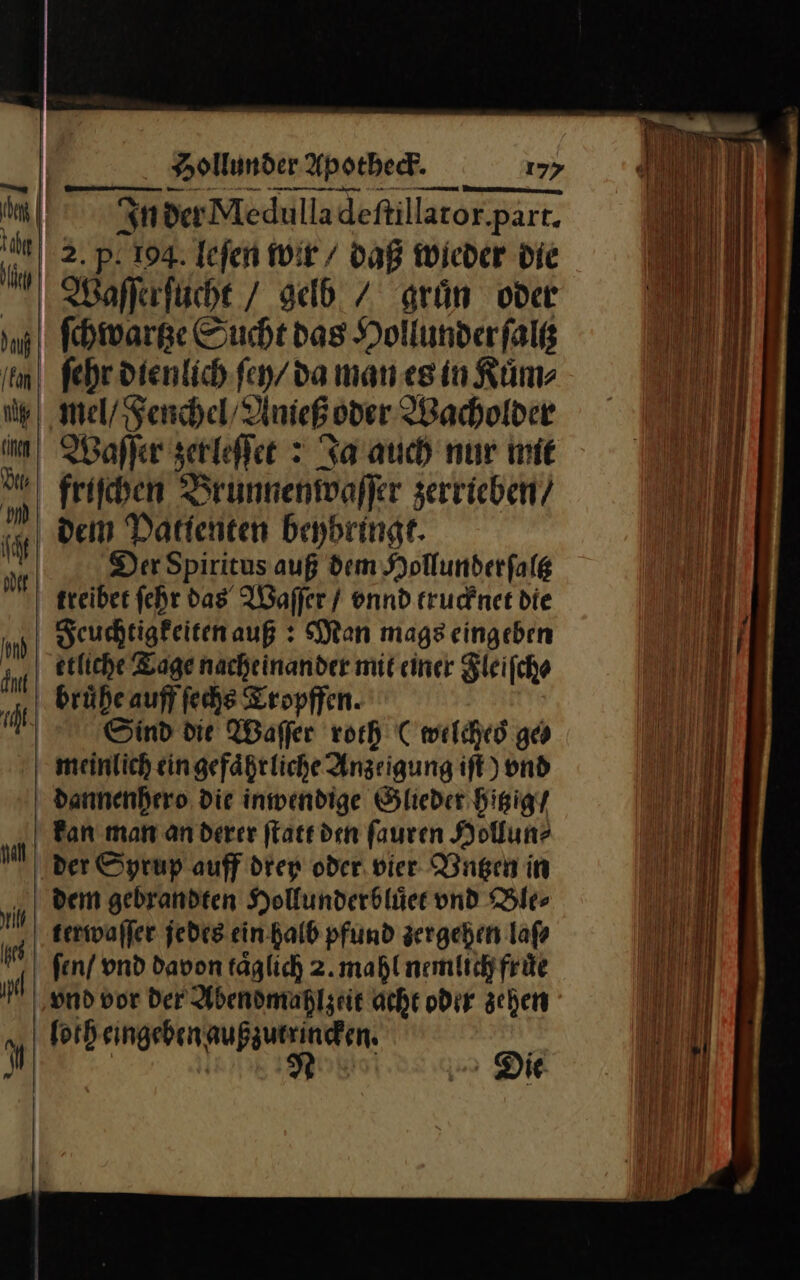 Hollunder Apotheck. 177
In der Medulla deſtillator. part.
2. p. 194. leſen wir / daß wieder die
Waſſerſucht / gelb / gruͤn oder
ſchwartze Sucht das Hollunderſaltz
ſehr dienlich ſey / da man es in Kuͤm⸗
mel / Fenchel / Anieß oder Wacholder
Waſſer zerleſſet : Ja auch nur mit
friſchen Brunnenwaſſer zerrieben /
dem Patienten beybringt.
Der Spiritus auß dem Hollunderſaltz
treibet ſehr das Waſſer / vnnd trucknet die
Feuchtigkeiten auß : Man mags eingeben
etliche Tage nacheinander mit einer Fleiſch⸗
bruͤhe auff ſechs Tropffen.
Sind die Waſſer roth ( welches ge⸗
meinlich ein gefaͤhrliche Anzeigung iſt ) vnd
dannenhero die inwendige Glieder hitzig /
kan man an derer ſtatt den ſauren Hollun⸗
der Syrup auff drey oder vier Vntzen in
dem gebrandten Hollunderbluͤet vnd Ble⸗
terwaſſer jedes ein halb pfund zergehen laſ⸗
ſen / vnd davon taͤglich 2. mahl nemlich fruͤe
vnd vor der Abendmahlzeit acht oder zehen
loth eingeben außzutrincken.
N Die